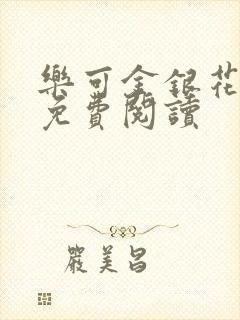 樂可金銀花
免費閱讀
嚴美昌